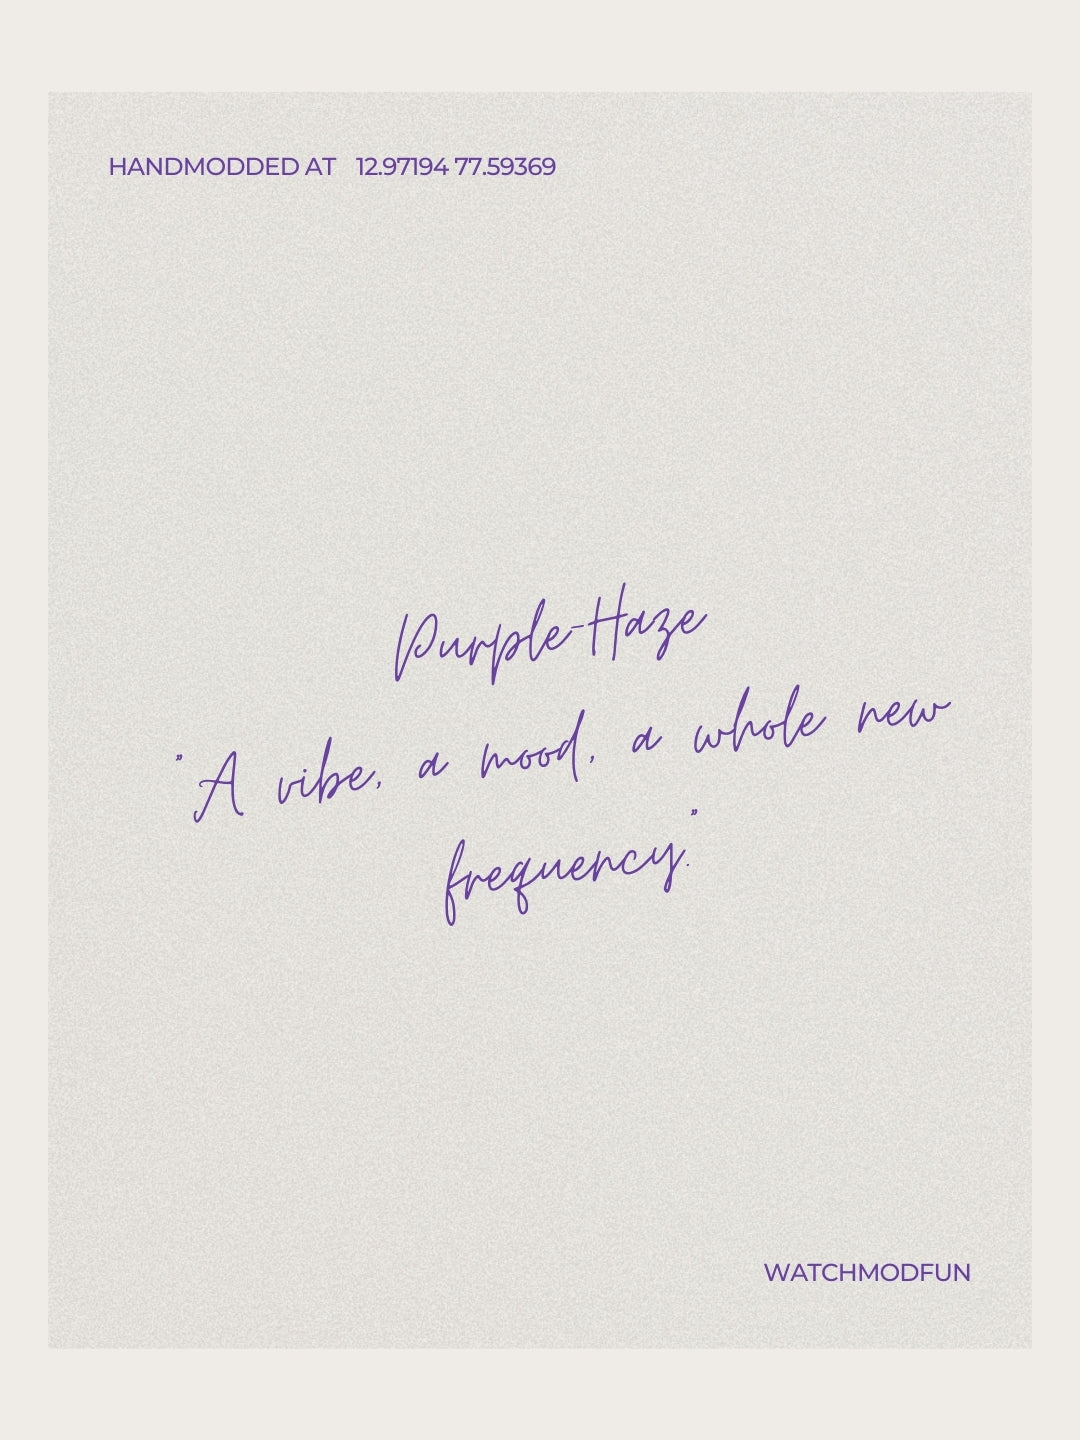 HANDMODDED AT 12.97194 77.59369
Purple-Haze
"A vibe, a mood, a whole new
frequency."
WATCHMODFUN